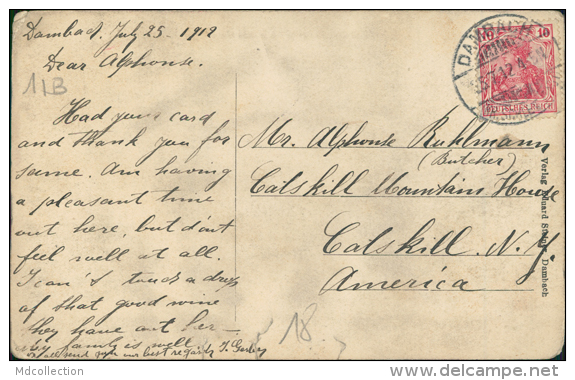 Dambach. July 25. 1912
Dear Alphonse.
11B
Had your card
and thank you for
same. Am having
a pleasant time
out here, but don't
feel well at all.
I can't touch a drop
of that good wine
they have out her-
My family is well
all send you our best regards J.
Mr. Alphonse Ruhlmann
(Butcher)
Catskill Mountain House
Catskill N.Y.
America
18.
DAMBACH
10 10
DEUTSCHES REICH
Verlag Eduard Dambach
Mdcollection
www.delcampe.net